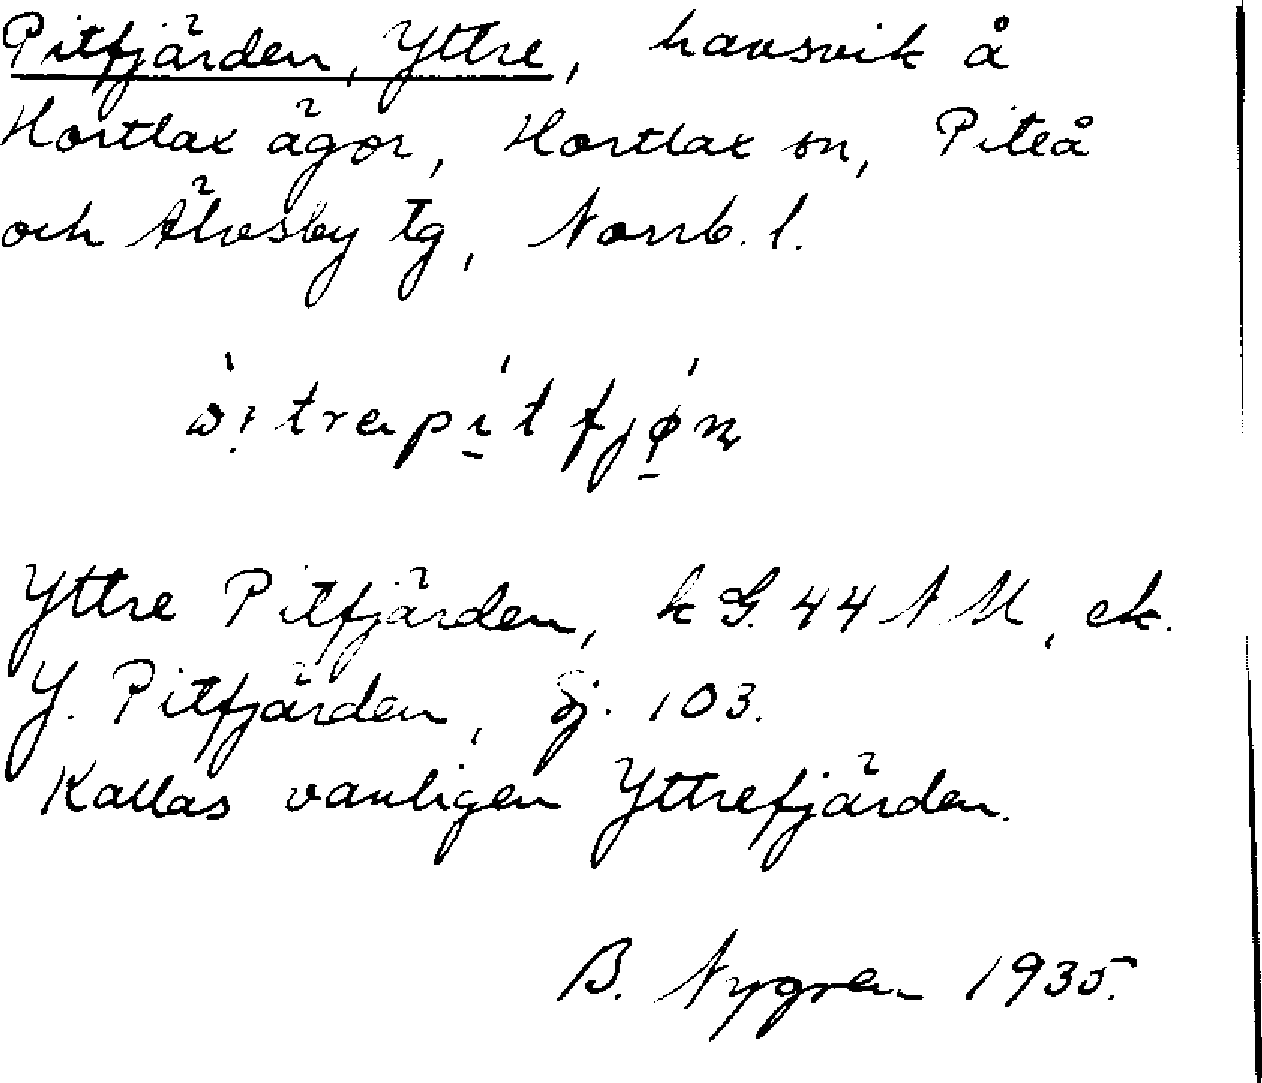 Pitfjärden, Yttre, havsvik å
Hortlax ägor, Hortlax sn, Piteå
och Älvsby tg, Norrb. l.
Yttre Pitfjärden, k G. 44 N M, ek.
Y. Pitfjärden, Sj. 103.
Kallas vanligen Yttrefjärden.
B. Nygren 1935.